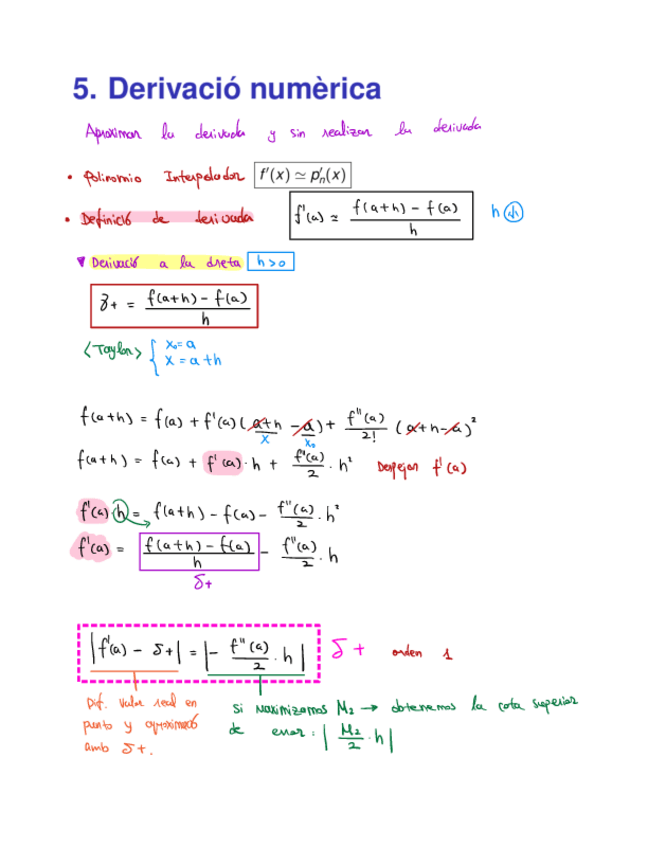 5. Derivació numèrica
Aproximar la derivada y sin realizar la derivada
• Polinomio Interpolador f'(x) ≃ p'ₙ(x)
• Definició de derivada f'(a) ≃ (f(a+h) - f(a)) / h h ↓h
▼ Derivació a la dreta h>0
δ+ = (f(a+h) - f(a)) / h
<Taylor> { x₀=a
x = a+h
f(a+h) = f(a) + f'(a)(a+h - a) + f''(a)/2! (a+h-a)²
x x₀
f(a+h) = f(a) + f'(a)·h + f''(a)/2 · h² Despejar f'(a)
f'(a) h = f(a+h) - f(a) - f''(a)/2 · h²
f'(a) = (f(a+h) - f(a)) / h - f''(a)/2 · h
δ+
|f'(a) - δ+| = |- f''(a)/2 · h| δ+ orden 1
Dif. valor real en
punto y aproximació
amb δ+.
Si maximizamos M₂ → obtenemos la cota superior
de error: | M₂/2 · h |